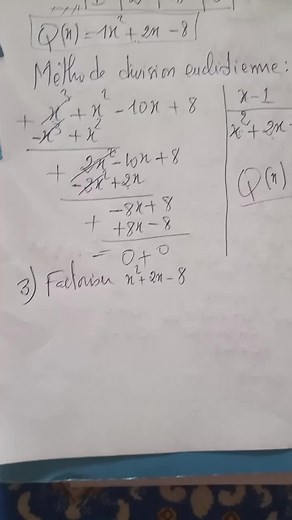 Q(x) = 1x² + 2x - 8
Méthode division euclidienne:
+ x³ + x² - 10x + 8 | x - 1
- x³ + x² | x² + 2x -
+ 2x² - 10x + 8
- 2x² + 2x | Q(x)
+ - 8x + 8
+ 8x - 8
= 0 + 0
3) Factoriser x² + 2x - 8